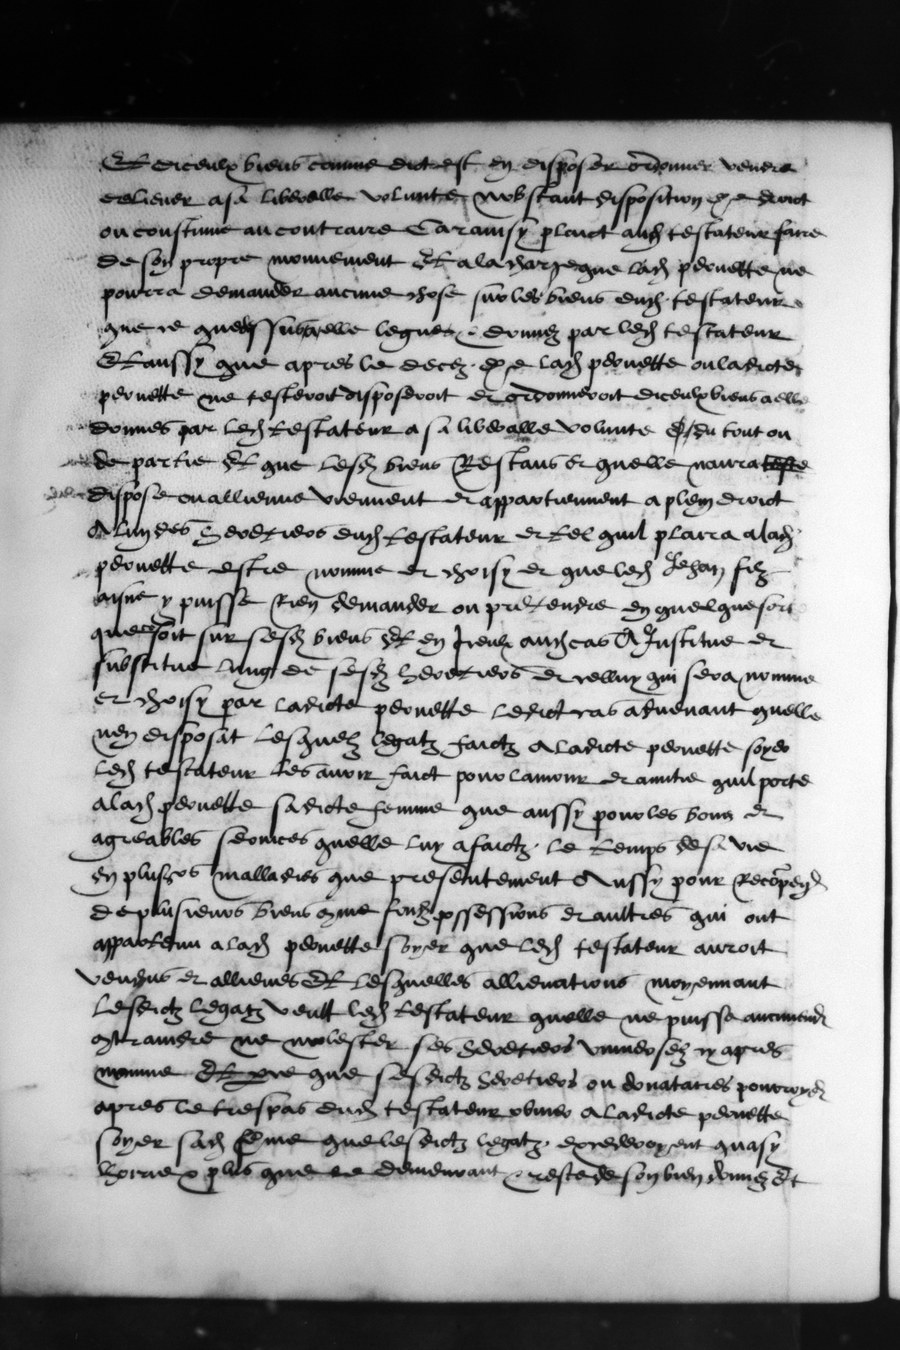 Et diceulx biens comme dict est en disposer ordonner vendre
et aliener a sa liberalle volunte nobstant disposition de droict
ou coustume au contraire Car ainsy plaict aud testateur faire
de son propre mouvement Et a la charge que lad peronette ne
pourra demander aucune chose sur les biens dud testateur
que ce quedessus a elle legue et donne par led testateur
Et aussy que apres le decez de lad peronette ou ladicte
peronette ne testeroit disposeroit et ordonneroit diceulx biens a elle
donnes par led testateur a sa liberalle volunte du tout ou
de partie Et que lesd biens Restans et quelle naura
dispose ou allienne viennent et appartiennent a plein droict
A lun des heretiers dud testateur et tel quil plaira a lad
peronette estre nomme et choisy et que led Jehan filz
aisne y puisse Rien demander ou pretendre en quelque sorte
que ce soit sur sesd biens Et en iceulx aud cas A Institue et
substitue lung de sesd heretiers et celluy qui sera nomme
et choisy par ladicte peronette ledict cas advenant quelle
nen disposat lesquelz legatz faictz a ladicte peronette soyer
led testateur les avoir faict pour lamour et amitie quil porte
a lad peronette sadicte femme que aussy pour les bons et
agreables services quelle luy a faictz le temps de sa vie
en plusrs malladies que presentement Aussy pour Recompense
de plusieurs biens comme fondz possessions et aultres qui ont
appartenu a lad peronette soyer que led testateur auroit
vendus et allienés Et lesquelles allienations moyennant
lesdictz legatz veult led testateur quelle ne puisse aucunement
contraindre ne molester ses heretiers universelz cy apres
nomme Et ce que sesdictz heretiers ou donataires pourroyent
apres le trespas dud testateur a ladicte peronette
soyer sad feme que lesdictz legatz excederoyent quasy
plus que le demeurant et reste de son bien donne Et